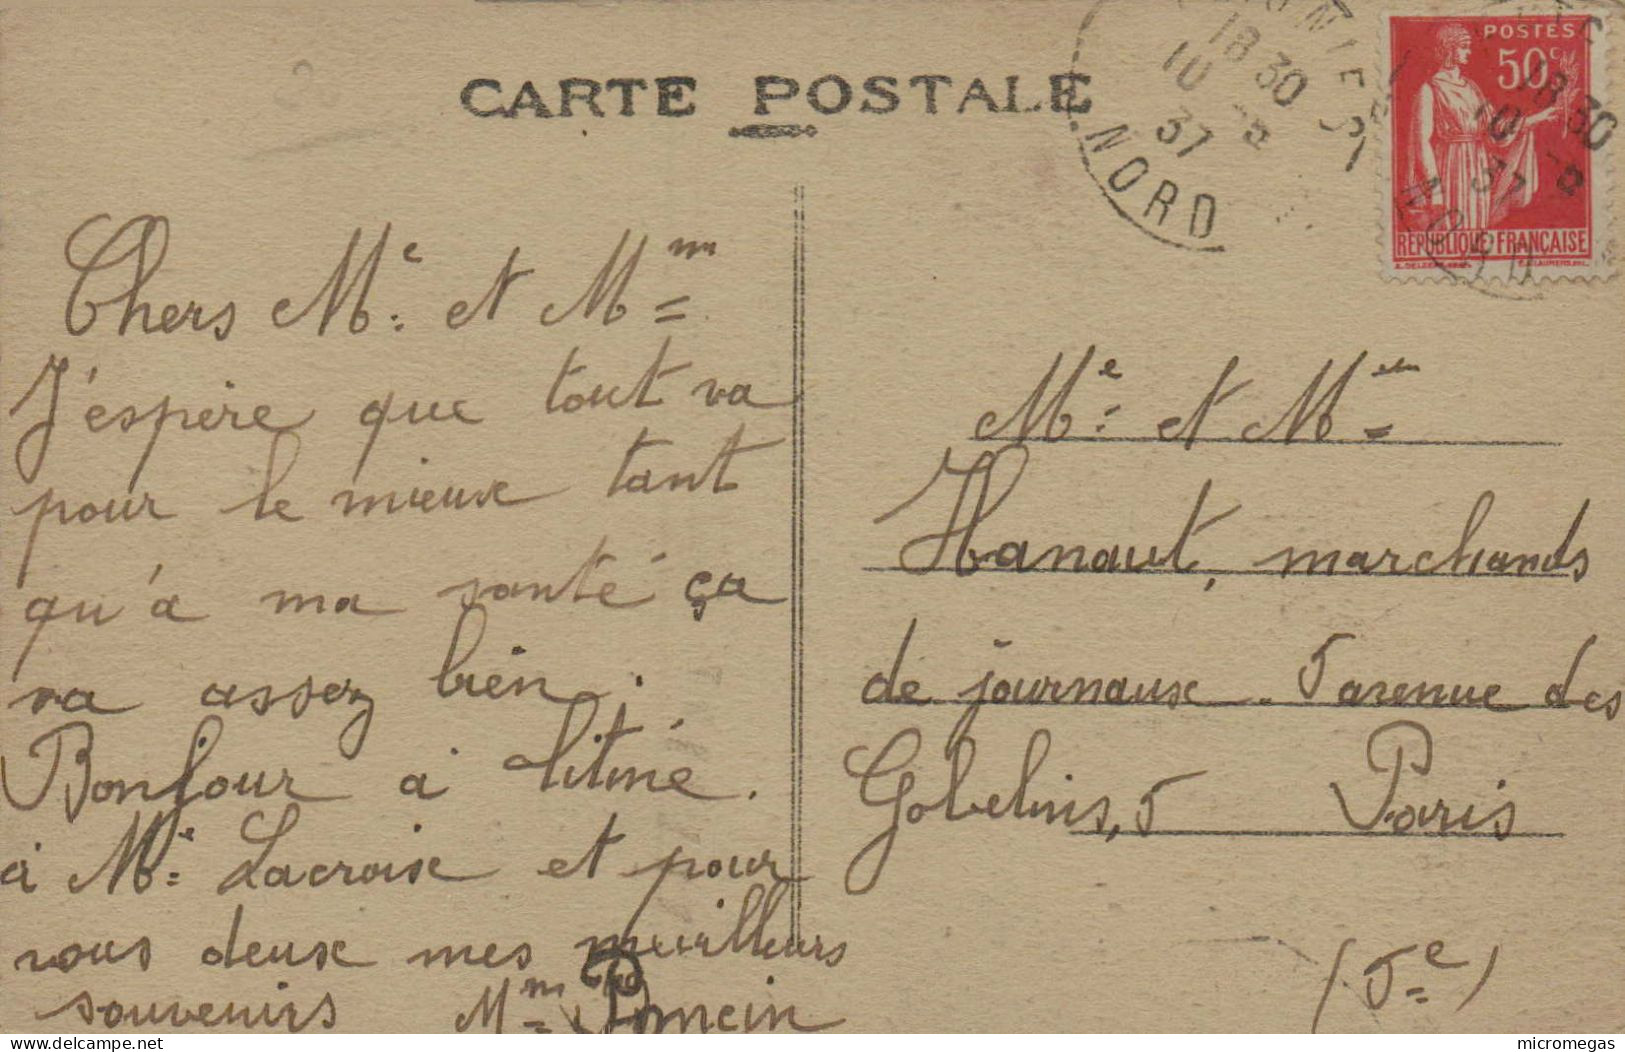 CARTE POSTALE
18 30
10 -8
37
NORD
POSTES
50c
RÉPUBLIQUE FRANÇAISE
18 30
10 -8
37
NORD
Chers Me. et Mm
J'espère que tout va
pour le mieux tant
qu'à ma santé ça
va assez bien.
Bonjour à Titine.
à Me. Lacroix et pour
vous deux mes meilleurs
souvenirs Mm
Me. et Mem
Hanaut, marchands
de journaux. 5 avenue des
Gobelins, 5 Paris
(5e)
delcampe.net
micromegas